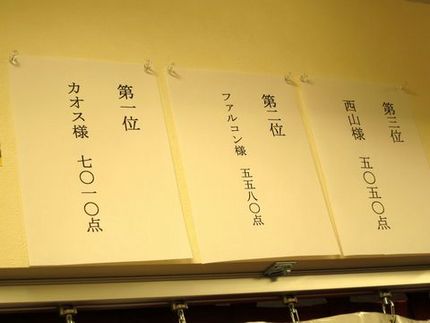 第一位
カオス様 七〇一〇点
第二位
ファルコン様 五五八〇点
第三位
西山様 五〇五〇点